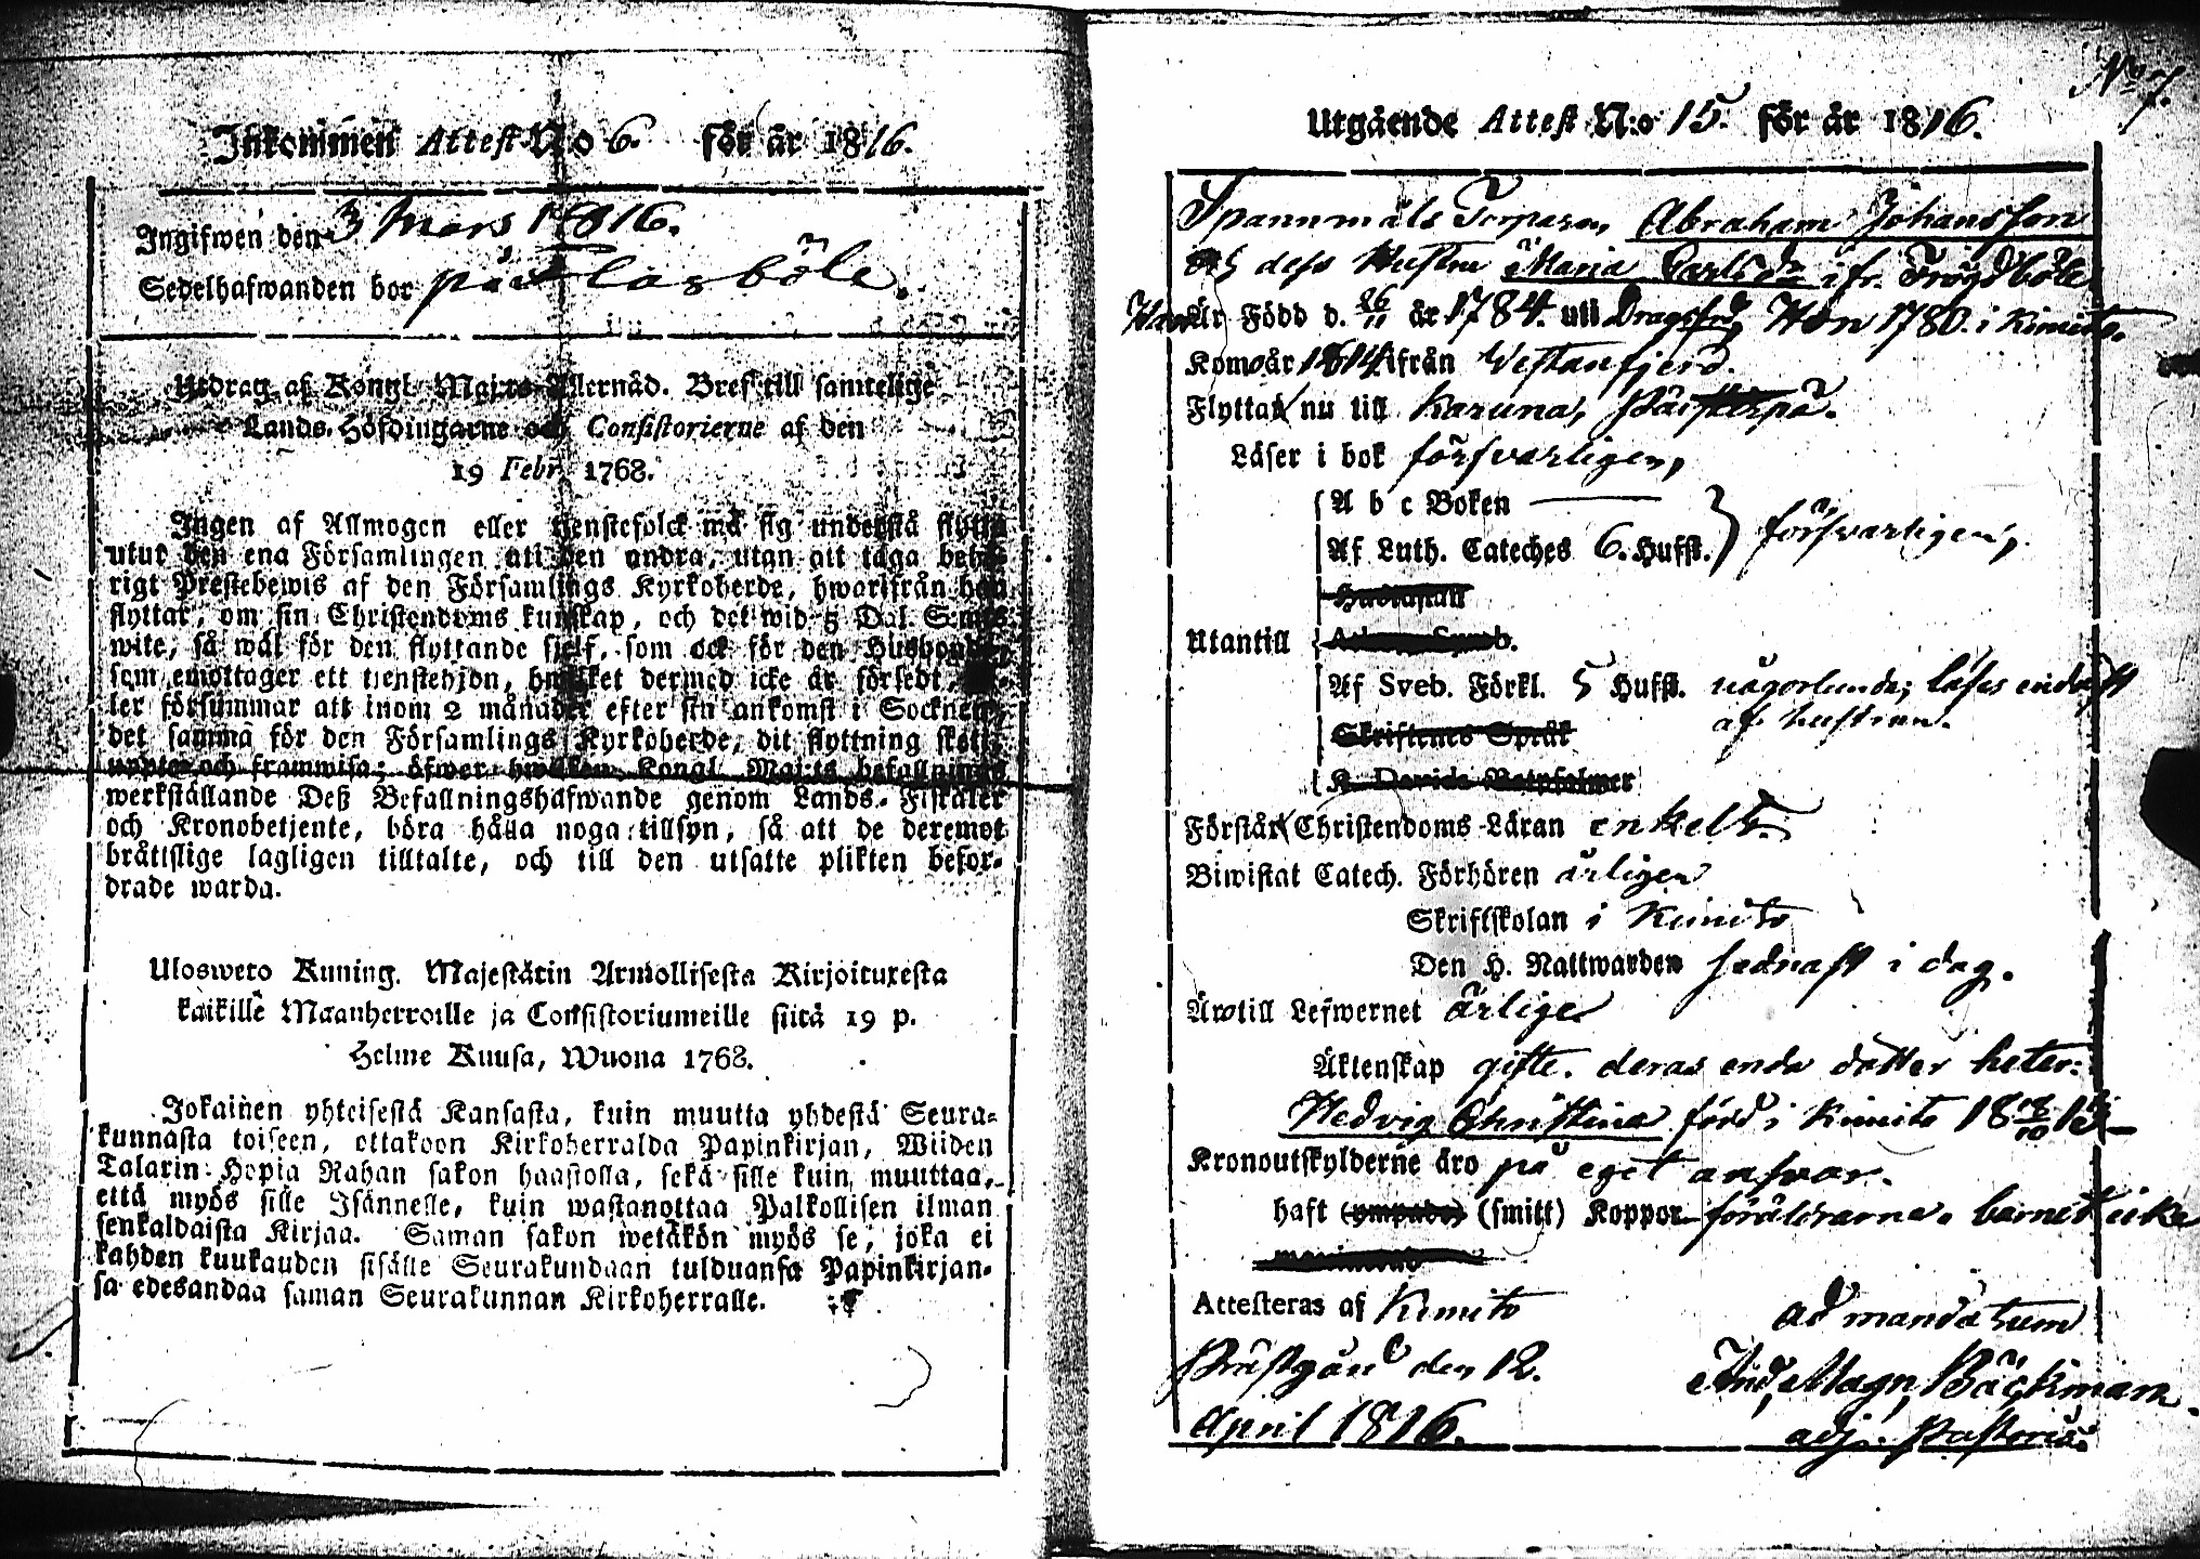 Inkommen Attest No 6. för år 1816.
Ingifwen den 3 Mars 1816.
Sedelhafwanden bor på
Utdrag af Kongl. Maj:ts Allernåd. Bref till samtelige
Lands-Höfdingarne och Consistorierne af den
19 Febr. 1768.
Ingen af Allmogen eller tjenstefolck må sig understå flytta
utur den ena Församlingen till den andra, utan att taga behö-
rigt Prestebewis af den Församlings Kyrkoherde, hwarifrån han
flyttar, om sin Christendoms kunskap, och det wid 5 Dal. S:mts
wite, så wäl för den flyttande sjelf, som ock för den Husbonde,
som emottager ett tienstehjon, hwilket dermed icke är försedt,
ler försummar att inom 2 månader efter sin ankomst i Socknen,
det samma för den Församlings Kyrkoherde, dit flyttning skett,
uppte och framwisa; öfwer hwilken Kongl. Maj:ts befallnings
werkställande Deß Befallningshafwande genom Lands-Fiskaler
och Kronobetjente, böra hålla noga tillsyn, så att de deremot
bråttslige lagligen tilltalte, och till den utsatte plikten befor-
drade warda.
Uloswero Kuning. Majestätin Armollisesta Kirjoituxesta
kaikille Maanherroille ja Consistoriumeille siitä 19 p.
Helme Kuusa, Wuona 1768.
Jokainen yhteisestä Kansasta, kuin muutta yhdestä Seura-
kunnasta toiseen, ottakoon Kirkoherralda Papinkirjan, Wiiden
Talarin Hopia Rahan sakon haastolla, sekä sille kuin muuttaa,
että myös sille Isännelle, kuin wastanottaa Palkollisen ilman
senkaldaista Kirjaa. Saman sakon wetäkön myös se, joka ei
kahden kuukauden sisälle Seurakundaan tulduansa Papinkirjan-
sa edesandaa saman Seurakunnan Kirkoherralle.
No 7.
Utgående Attest N:o 15. för år 1816.
Spannmåls Torparen, Abraham Johansson
och dess Hustru Maria Carlsdr ifr. Trögsböle
Han Är Född d. 26/11 år 1784. uti Dragsfjd, Hon 1780. i Kimito.
Kom år 1814 ifrån Westanfjerd.
Flyttar nu till Karuna,
Läser i bok försvarligen,
A b c Boken
Af Luth. Cateches 6. Hufst. försvarligen,
Hustaflan
Utantill
Af Sveb. Förkl. 5 Hufst. någorlunda; läses endast
af hustrun.
Skriftenes Språk
K. Davids Botpsalmer
Förstår Christendoms-Läran enkelt.
Biwistat Catech. Förhören årligen
Skriftskolan i Kimito
Den H. Nattwarden sednast i dag.
Är till Lefwernet ärlige
Äktenskap gifte. deras enda dotter heter:
Hedvig Christina född i Kimito 18 18/10 15
Kronoutskylderne äro på eget ansvar.
haft (ympade) (smitt) Koppor föräldrarna. barnet icke
Attesteras af Kimito
Prästgård den 12.
April 1816.
ad mandatum
And, Magn, Bäckman.
adj. Pastoris.